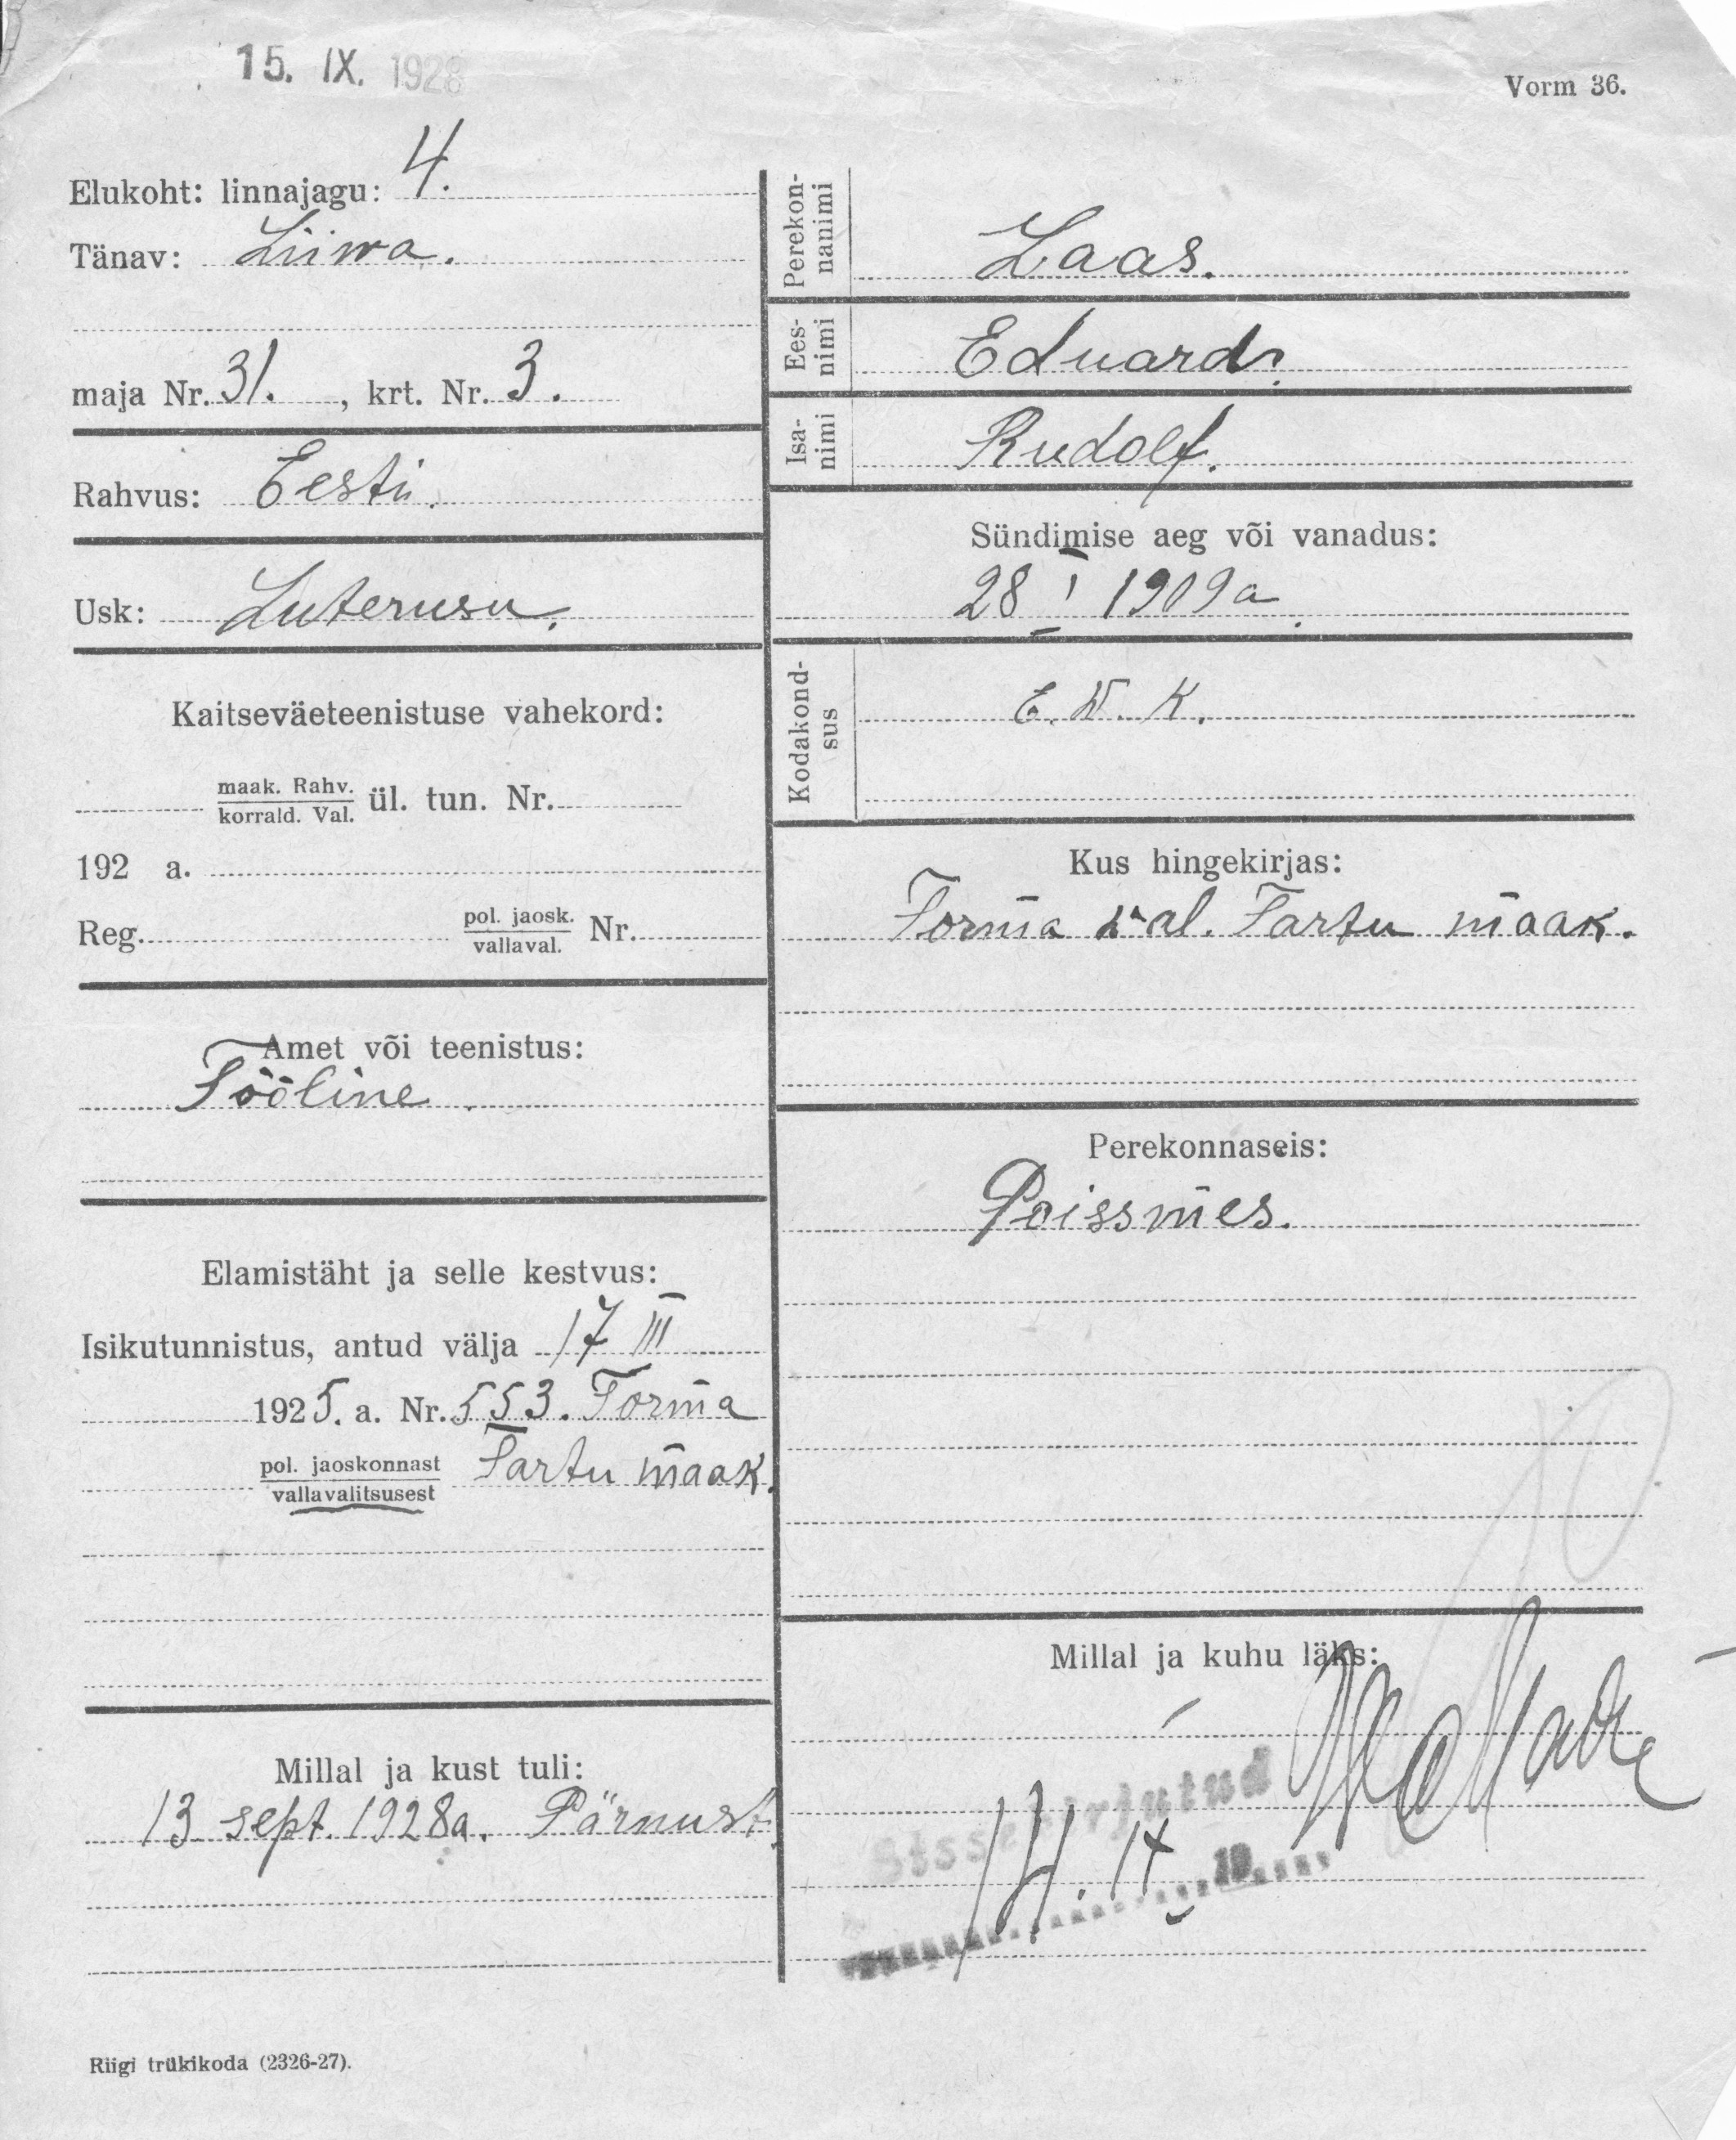 15. IX. 1928
Vorm 36.
Elukoht: linnajagu: 4.
Tänav: Liiwa.
maja Nr. 31. , krt. Nr. 3.
Rahvus: Eesti.
Usk: Luterusu.
Kaitseväeteenistuse vahekord:
maak. Rahv.
korrald. Val. ül. tun. Nr.
192 a.
Reg. pol. jaosk.
vallaval. Nr.
Amet või teenistus:
Tööline
Elamistäht ja selle kestvus:
Isikutunnistus, antud välja 17 III
1925. a. Nr. 553. Torma
pol. jaoskonnast
vallavalitsusest Tartu maak.
Millal ja kust tuli:
13 sept. 1928a. Pärnust
Riigi trükikoda (2326-27).
Perekon-
nanimi Laas.
Ees-
nimi Eduard.
Isa-
nimi Rudolf.
Sündimise aeg või vanadus:
28 I 1909a.
Kodakond-
sus E. W. K.
Kus hingekirjas:
Torma wal. Tartu maak.
Perekonnaseis:
Poissmes.
Millal ja kuhu läks:
Sissekirjutud
14. IX 19